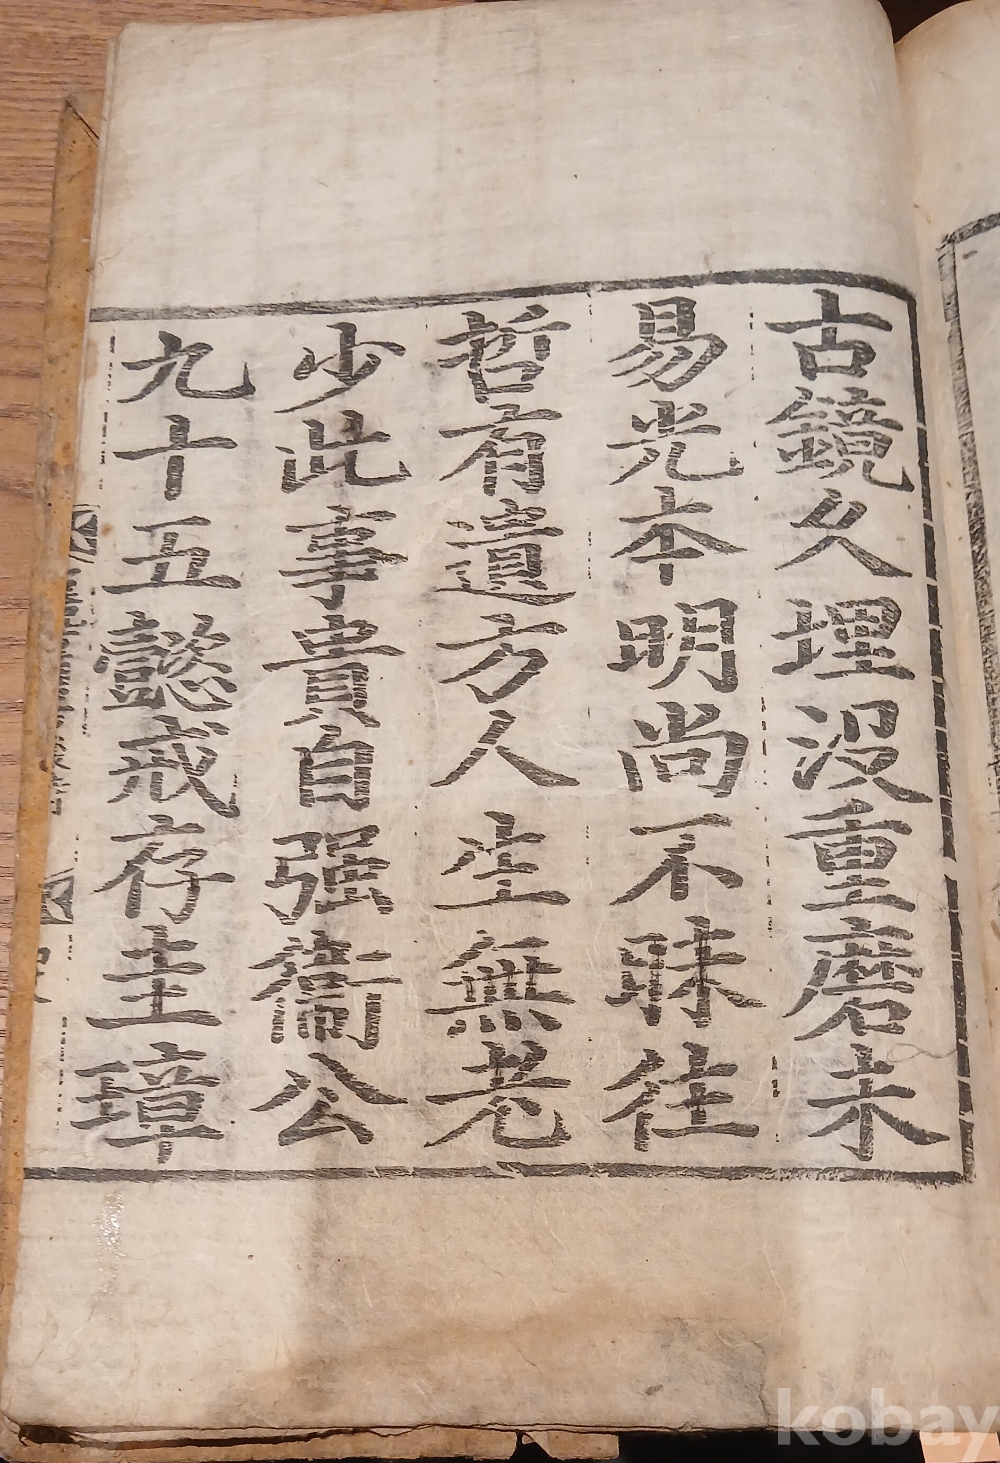 古鏡久埋沒重磨未
易光本明尙不昧往
哲有遺方人生無老
少此事貴自强衛公
九十五懿戒存圭璋
kobay